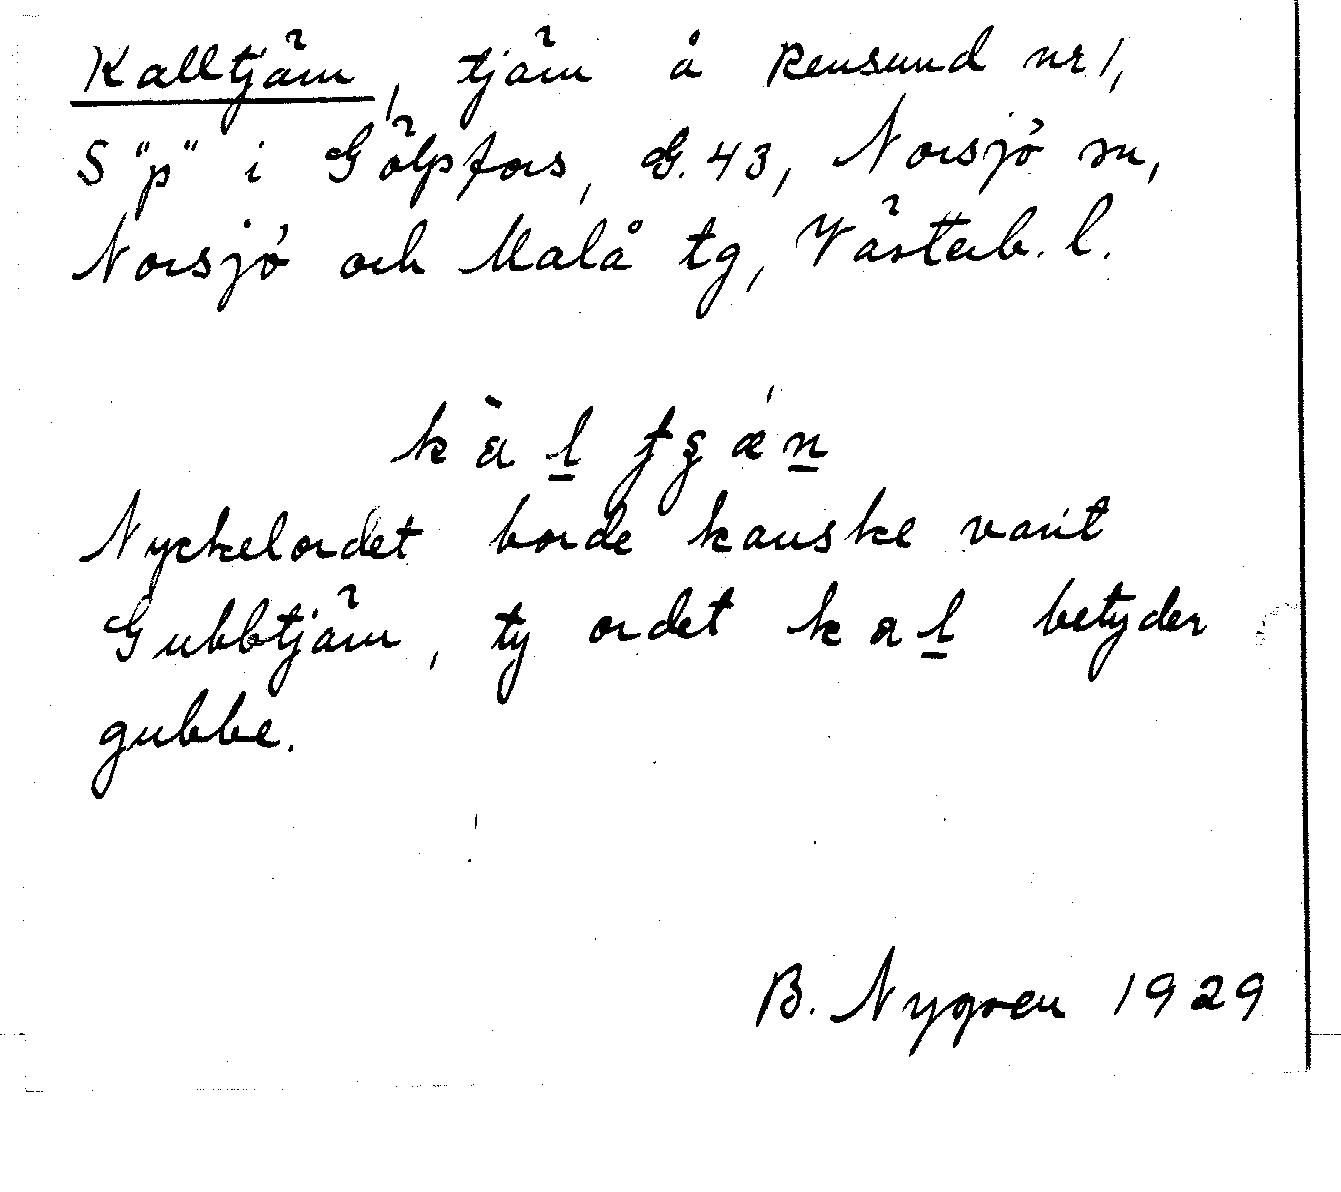 Kalltjäm, tjäm å Rensund nr 1,
S "p" i Gölpfors, G. 43, Norsjö sn,
Norsjö och Malå tg, Västerb. l.
Nyckelordet borde kanske varit
Gubbtjäm, ty ordet kaḻ betyder
gubbe.
B. Nygren 1929